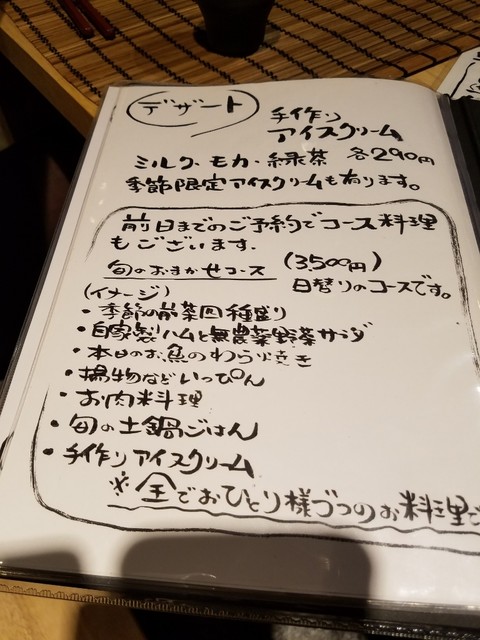 デザート
手作り
アイスクリーム
ミルク・モカ・緑茶 各290円
季節限定アイスクリームも有ります。
前日までのご予約でコース料理
もございます。
旬のおまかせコース (3,500円)
(イメージ) 日替りのコースです。
・季節の前菜四種盛り
・自家製ハムと無農薬野菜サラダ
・本日のお魚のわら焼き
・揚物などいっぴん
・お肉料理
・旬の土鍋ごはん
・手作りアイスクリーム
※全でおひとり様づつのお料理で